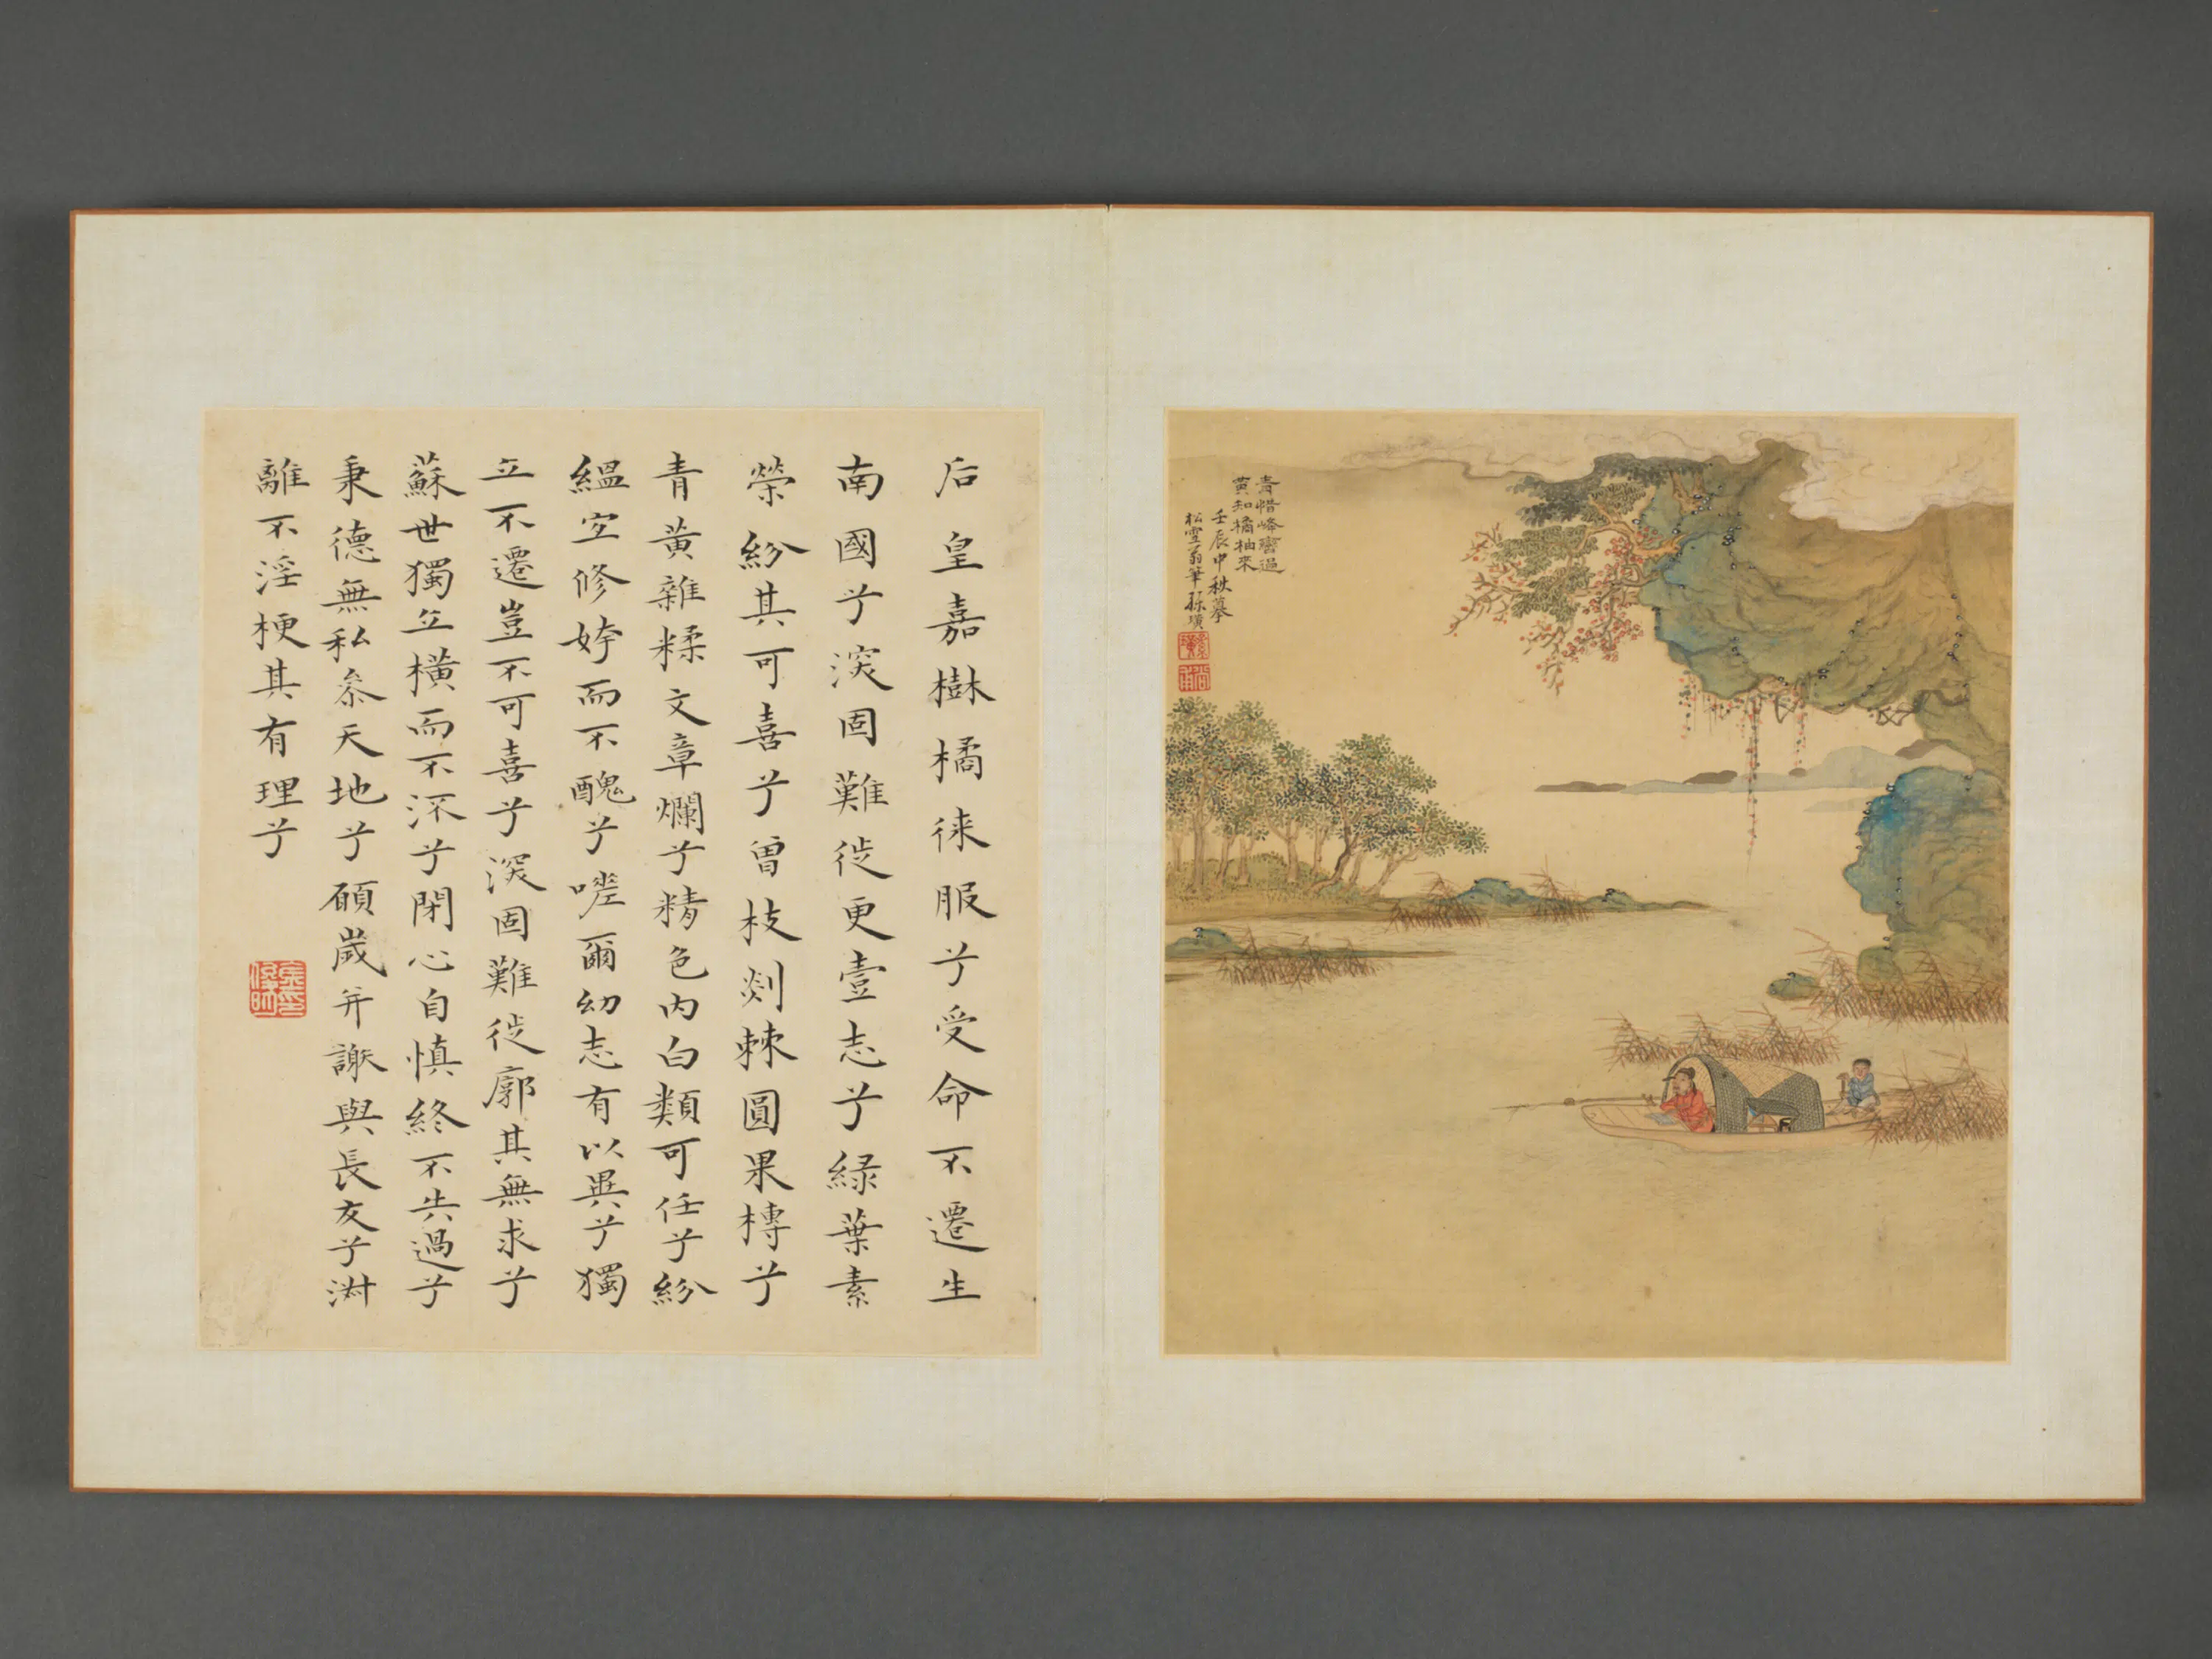 青惜峰巒過
黃知橘柚來
壬辰中秋摹
松雪翁筆 孫璜
后皇嘉樹橘徠服兮受命不遷生
南國兮深固難徙更壹志兮綠葉素
榮紛其可喜兮曾枝剡棘圓果槫兮
青黃雜糅文章爛兮精色內白類可任兮紛
緼宜修姱而不醜兮嗟爾幼志有以異兮獨
立不遷豈不可喜兮深固難徙廓其無求兮
蘇世獨立橫而不流兮閉心自慎終不失過兮
秉德無私參天地兮願歲并謝與長友兮淑
離不淫梗其有理兮